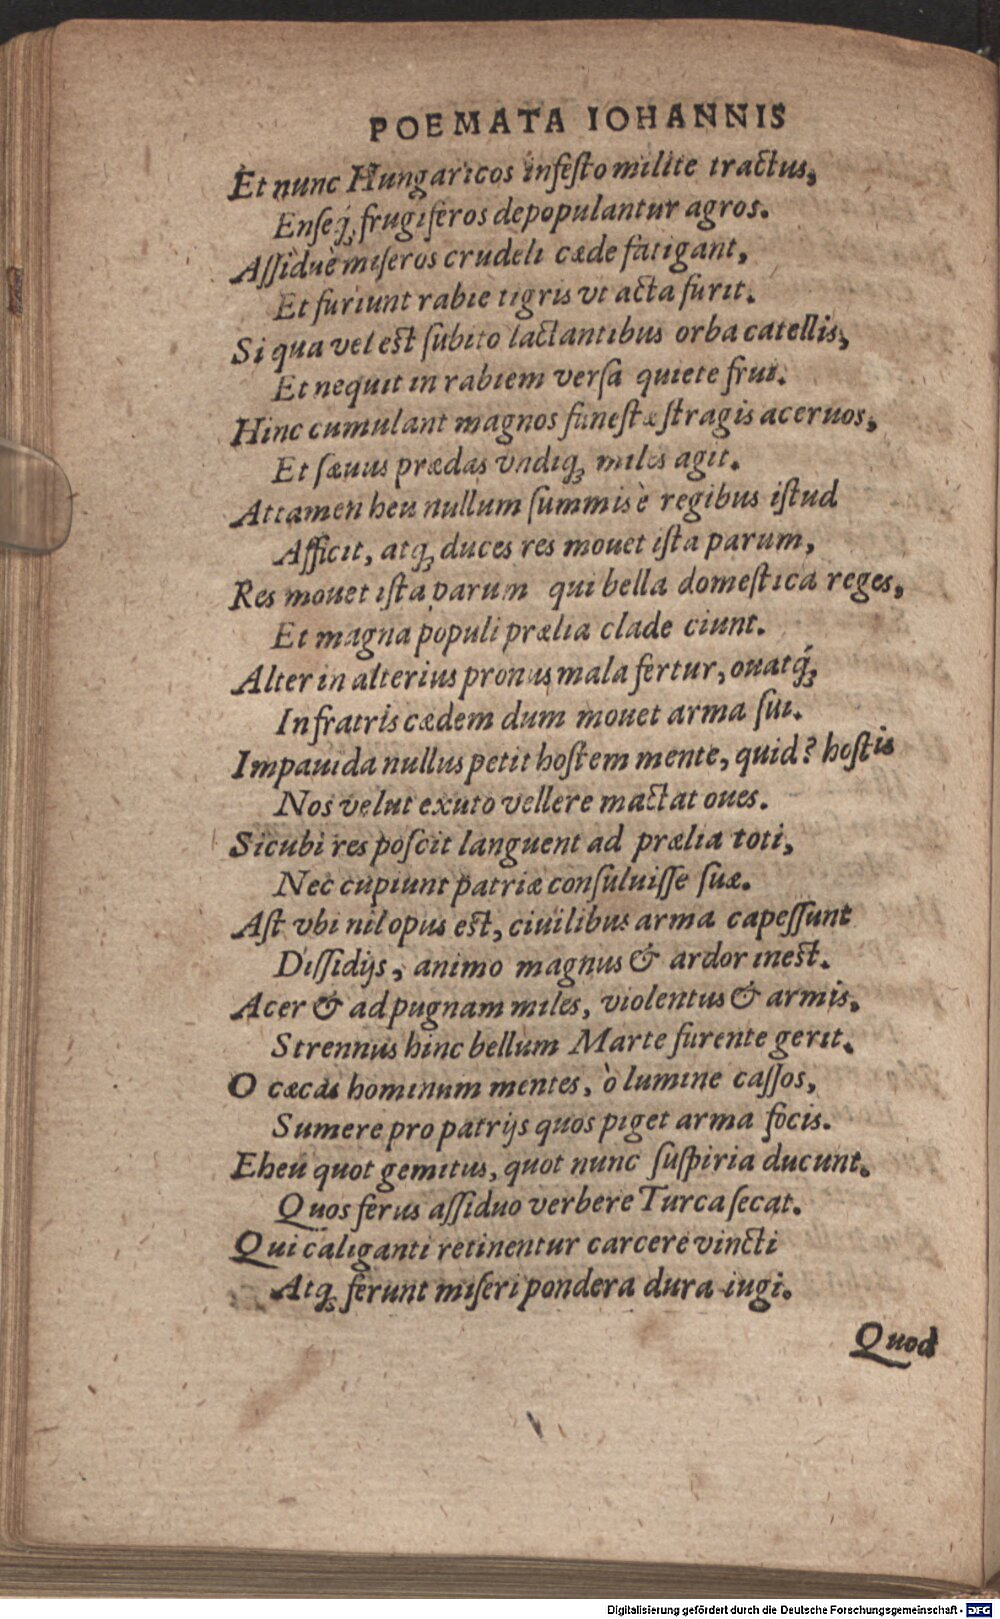 POEMATA IOHANNIS
Et nunc Hungaricos infeſto milite tractus,
Enſeq́; frugiferos depopulantur agros.
Aſſiduè miſeros crudeli cæde fatigant,
Et furiunt rabie tigris vt acta furit.
Si qua vel eſt ſubito lactantibus orba catellis,
Et nequit in rabiem verſa quiete frui.
Hinc cumulant magnos funeſtæ ſtragis aceruos,
Et ſæuus prædas vndiq; miles agit.
Attamen heu nullum ſummis è regibus iſtud
Afficit, atq; duces res mouet iſta parum,
Res mouet iſta parum qui bella domeſtica reges,
Et magna populi prælia clade ciunt.
Alter in alterius pronus mala fertur, ouatq́;
In fratris cædem dum mouet arma ſui.
Impauida nullus petit hoſtem mente, quid? hoſtis
Nos velut exuto vellere mactat oues.
Sicubi res poſcit languent ad prælia toti,
Nec cupiunt patriæ conſuluiſſe ſuæ.
Aſt vbi nil opus eſt, ciuilibus arma capeſſunt
Diſſidijs, animo magnus & ardor ineſt.
Acer & ad pugnam miles, violentus & armis,
Strennus hinc bellum Marte furente gerit.
O cæcas hominum mentes, ò lumine caſſos,
Sumere pro patrijs quos piget arma focis.
Eheu quot gemitus, quot nunc ſuſpiria ducunt.
Quos ferus aſſiduo verbere Turca ſecat.
Qui caliganti retinentur carcere vincti
Atq; ferunt miſeri pondera dura iugi.
Quod
Digitalisierung gefördert durch die Deutsche Forschungsgemeinschaft - DFG